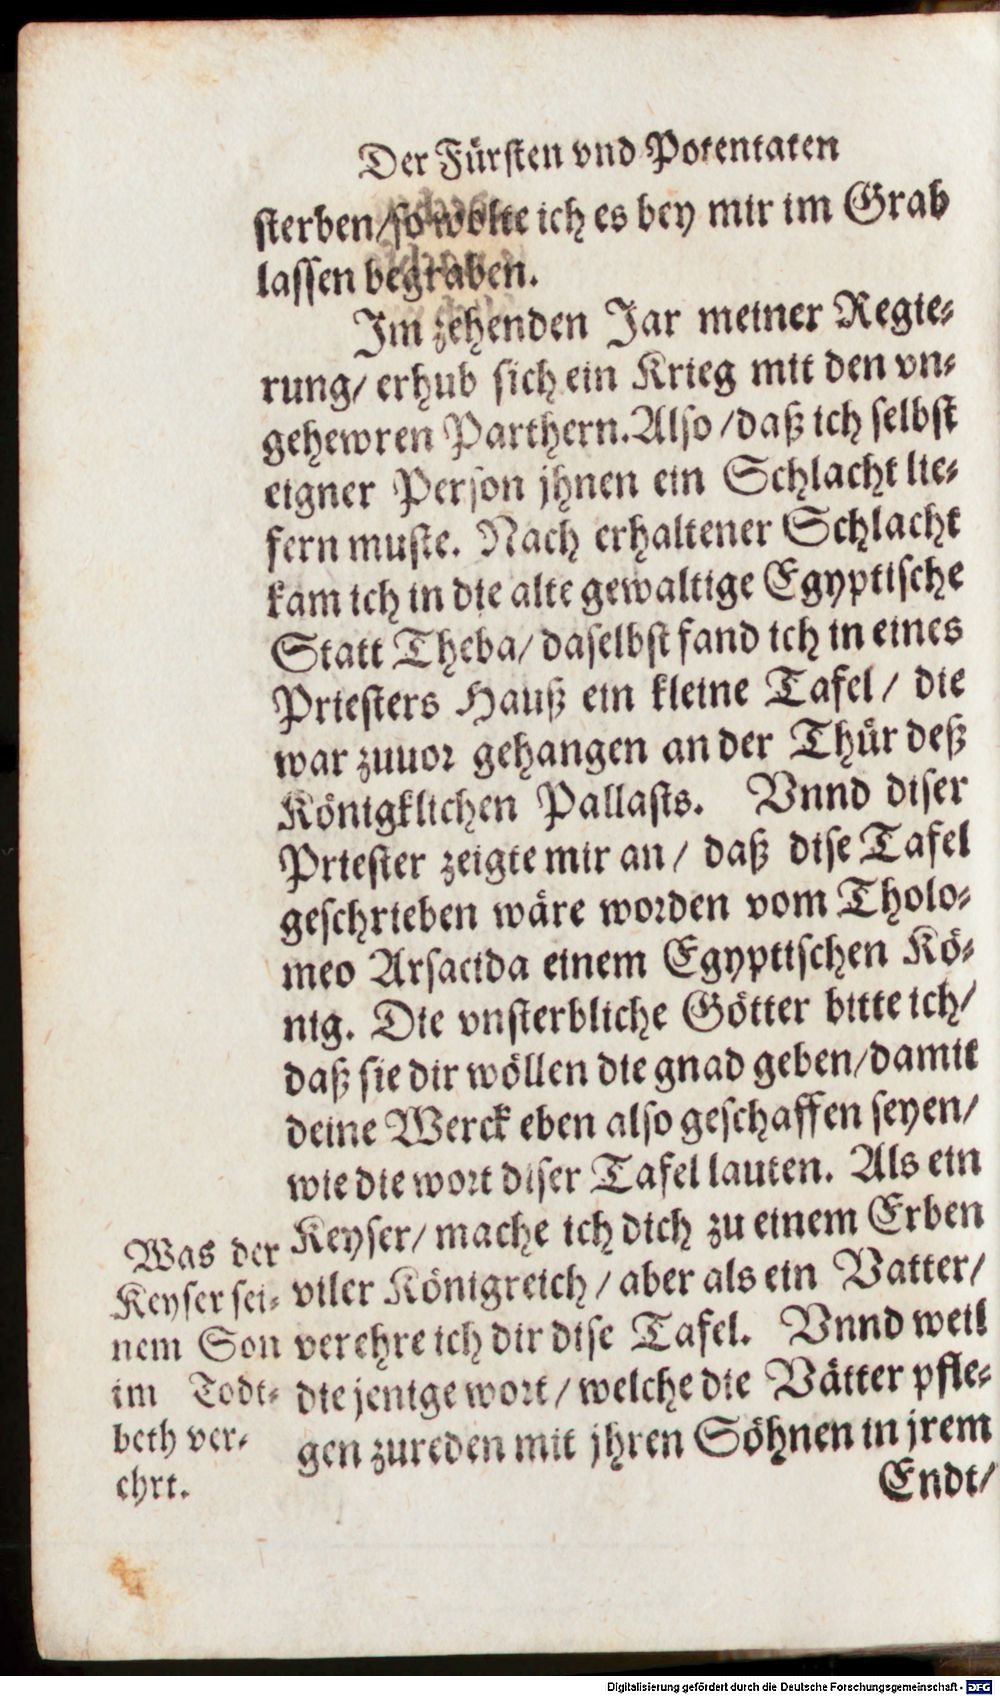 Der Fürsten vnd Potentaten
sterben/so wolte ich es bey mir im Grab
lassen begraben.
Im zehenden Jar meiner Regie-
rung/ erhub sich ein Krieg mit den vn-
gehewren Parthern. Also /daß ich selbst
eigner Person jhnen ein Schlacht lie-
fern muste. Nach erhaltener Schlacht
kam ich in die alte gewaltige Egyptische
Statt Theba/ daselbst fand ich in eines
Priesters Hauß ein kleine Tafel/ die
war zuuor gehangen an der Thür deß
Königklichen Pallasts. Vnnd diser
Priester zeigte mir an/ daß dise Tafel
geschrieben wäre worden vom Tholo-
meo Arsacida einem Egyptischen Kö-
nig. Die vnsterbliche Götter bitte ich/
daß sie dir wöllen die gnad geben/damit
deine Werck eben also geschaffen seyen/
wie die wort diser Tafel lauten. Als ein
Keyser/ mache ich dich zu einem Erben
viler Königreich/ aber als ein Vatter/
verehre ich dir dise Tafel. Vnnd weil
die jenige wort/ welche die Vätter pfle-
gen zureden mit jhren Söhnen in jrem
Endt/
Was der
Keyser sei-
nem Son
im Todt-
beth ver-
ehrt.
Digitalisierung gefördert durch die Deutsche Forschungsgemeinschaft - DFG